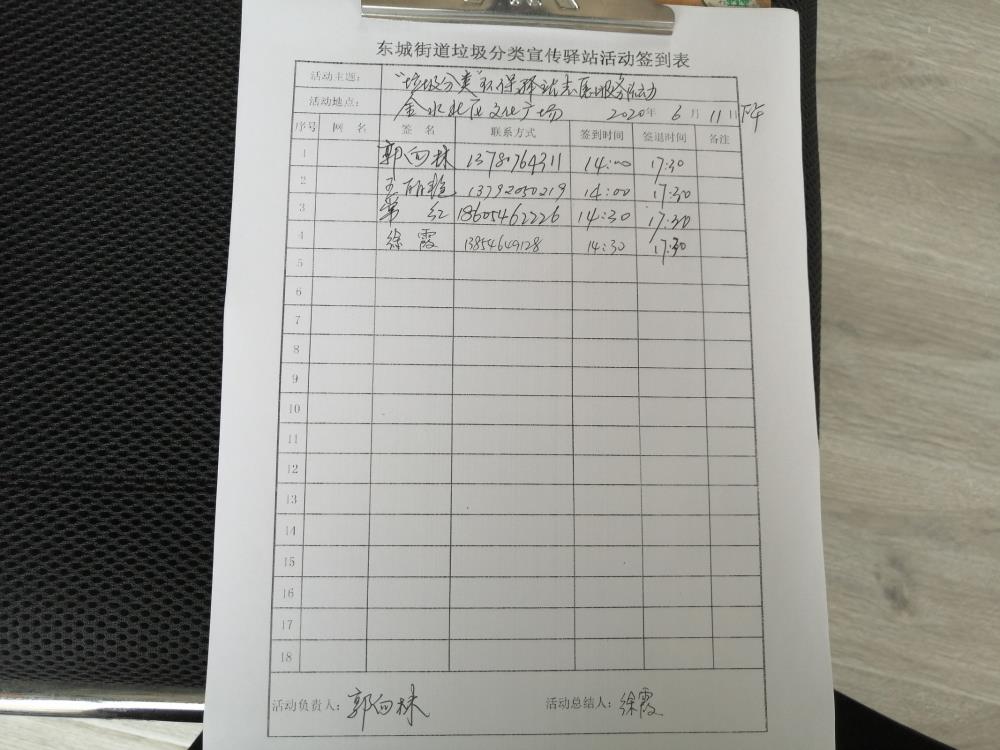 东城街道垃圾分类宣传驿站活动签到表
活动主题： "垃圾分类"环保驿站志愿服务活动
活动地点： 金水北区文化广场 2020年 6月 11日下午
序号 网 名 签 名 联系方式 签到时间 签退时间 备注
1 郭向林 13780764311 14:00 17:30
2 王丽 13792050219 14:00 17:30
3 红 18605462226 14:30 17:30
4 徐霞 13854649128 14:30 17:30
5
6
7
8
9
10
11
12
13
14
15
16
17
18
活动负责人：郭向林 活动总结人：徐霞